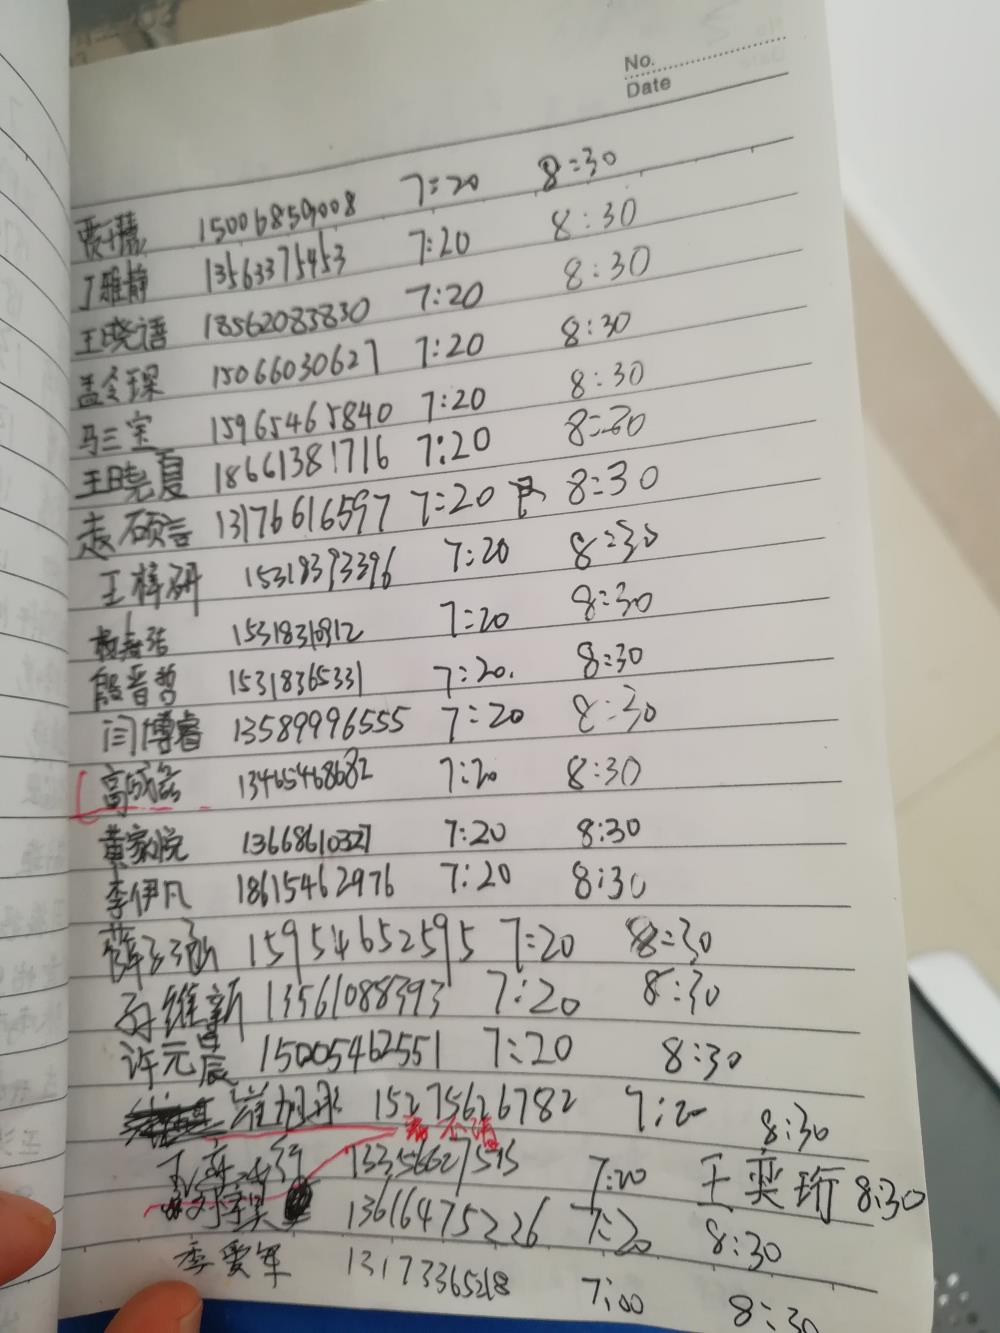 No.
Date
贾慧 15006859008 7:20 8:30
丁雅静 13563375453 7:20 8:30
王晓语 18562083830 7:20 8:30
孟令琛 15066030627 7:20 8:30
马三宝 15965465840 7:20 8:30
王晓夏 18661381716 7:20 8:30
赵硕言 13176616597 7:20 8:30
王梓研 15318393396 7:20 8:30
15318310912 7:20 8:30
殷晋哲 15318365331 7:20. 8:30
闫博睿 13589996555 7:20 8:30
高 13465468682 7:20 8:30
黄家悦 13668610327 7:20 8:30
李伊凡 18615462976 7:20 8:30
薛 15954652595 7:20 8:30
孙维新 13561088393 7:20 8:30
许元晨 15005462551 7:20 8:30
崔 15275626782 7:20 8:30
看不清
13356627515 7:20 王奕珩 8:30
13616475226 7:20 8:30
季爱军 13173365218 7:00 8:30